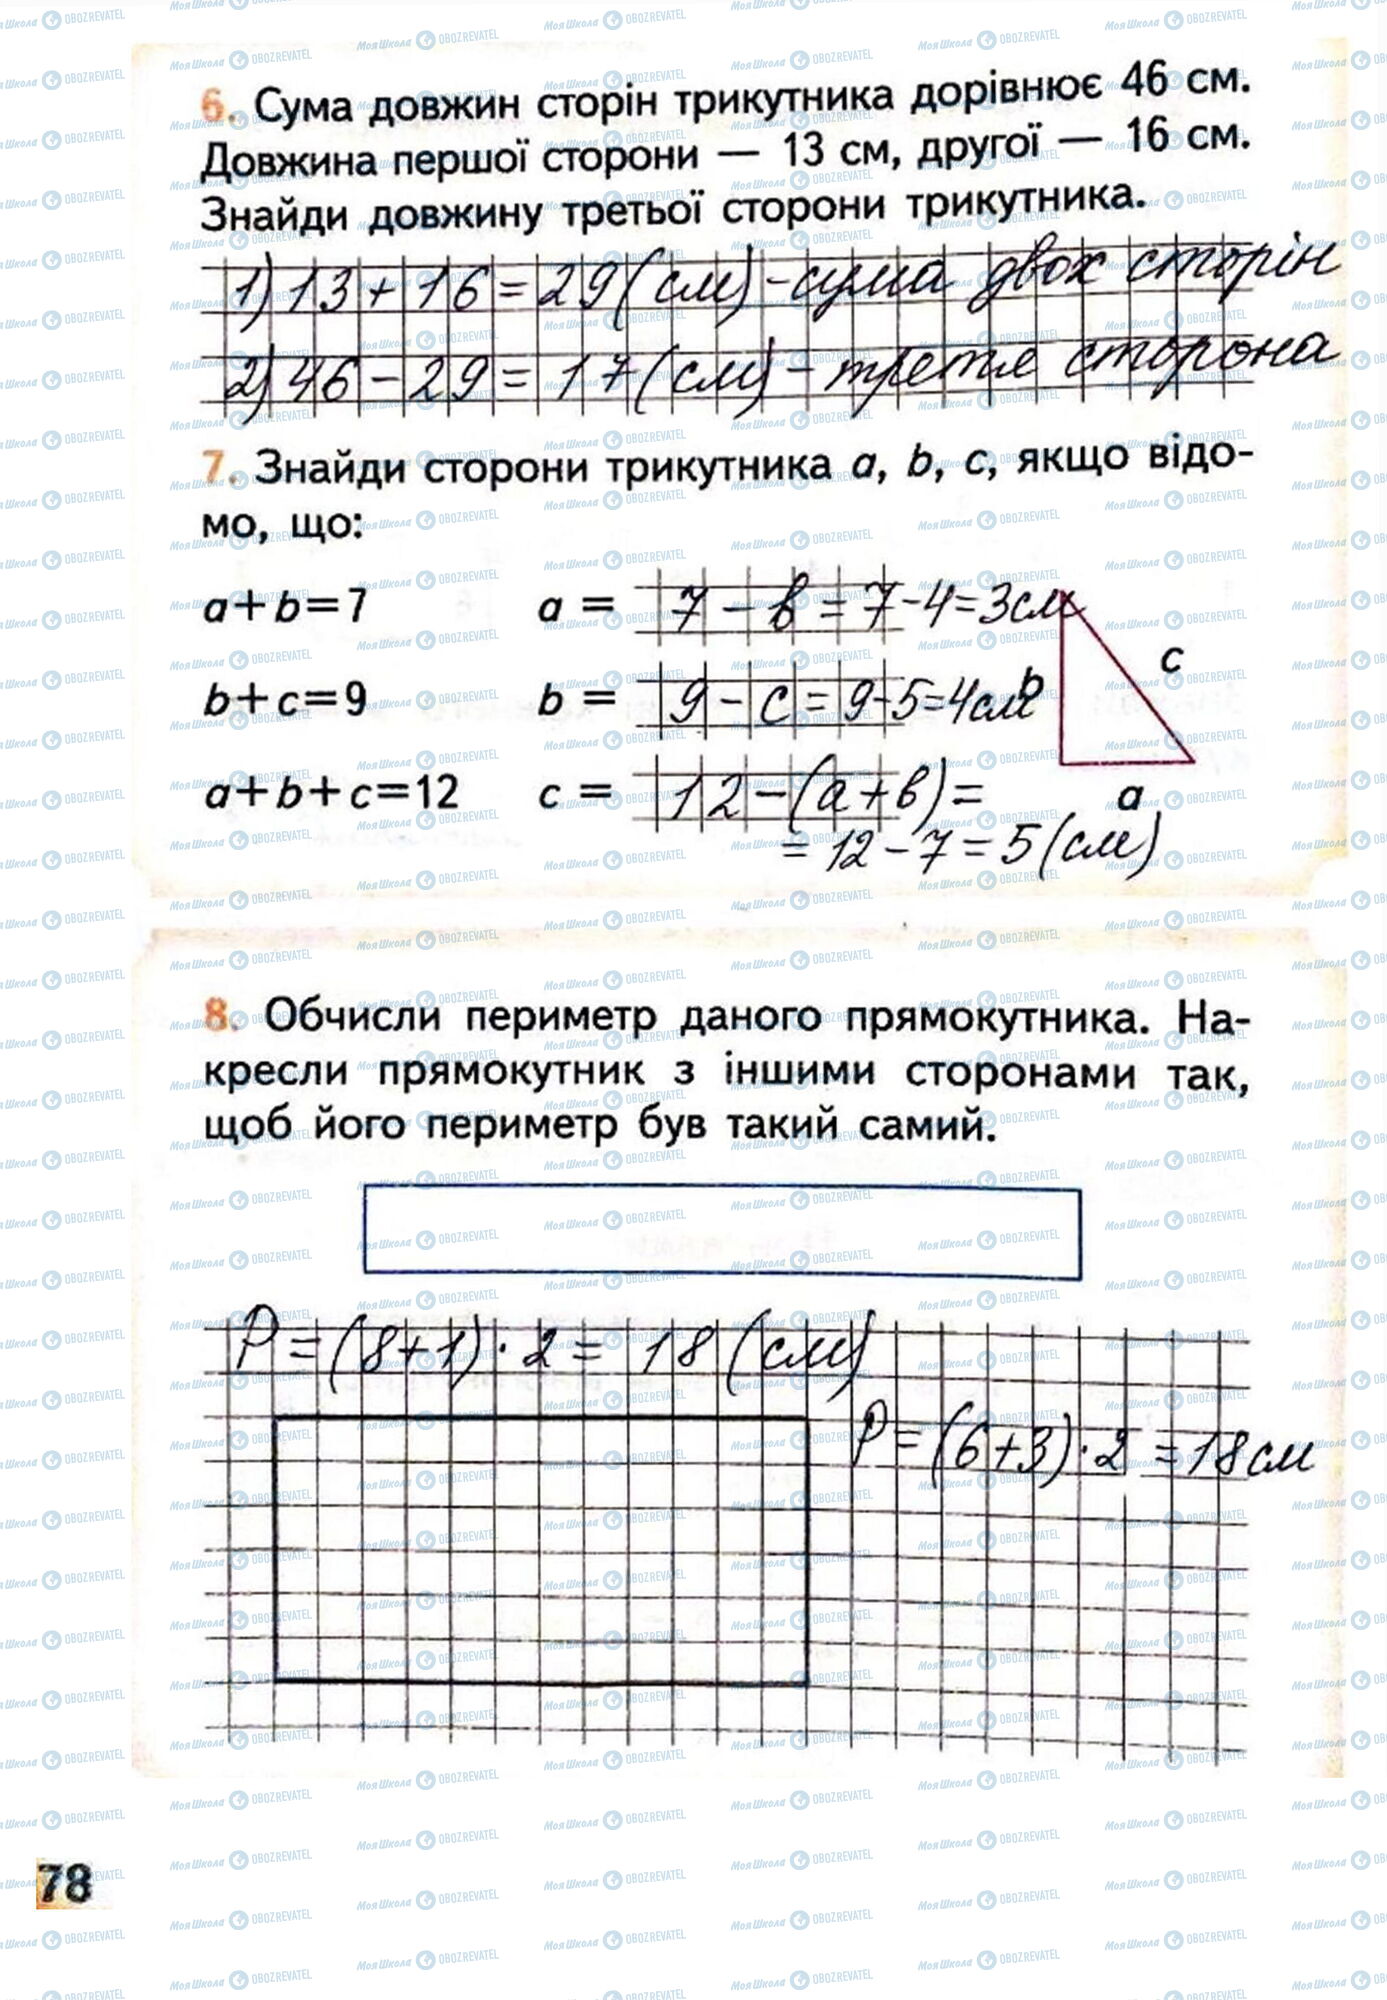 6. Сума довжин сторін трикутника дорівнює 46 см.
Довжина першої сторони — 13 см, другої — 16 см.
Знайди довжину третьої сторони трикутника.
1) 13 + 16 = 29 (см) - сума двох сторін
2) 46 - 29 = 17 (см) - третя сторона
7. Знайди сторони трикутника a, b, c, якщо відо-
мо, що:
a+b=7 a = 7 - в = 7 - 4 = 3 см
c
b+c=9 b = 9 - с = 9 - 5 = 4 см b
a+b+c=12 c = 12 - (а + в) = a
= 12 - 7 = 5 (см)
8. Обчисли периметр даного прямокутника. На-
кресли прямокутник з іншими сторонами так,
щоб його периметр був такий самий.
P = (8+1) · 2 = 18 (см)
P = (6+3) · 2 = 18 см
78
МояШкола OBOZREVATEL